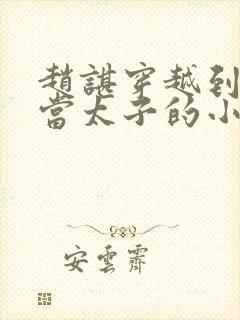 趙諶穿越到
當太子的小
安雲霽